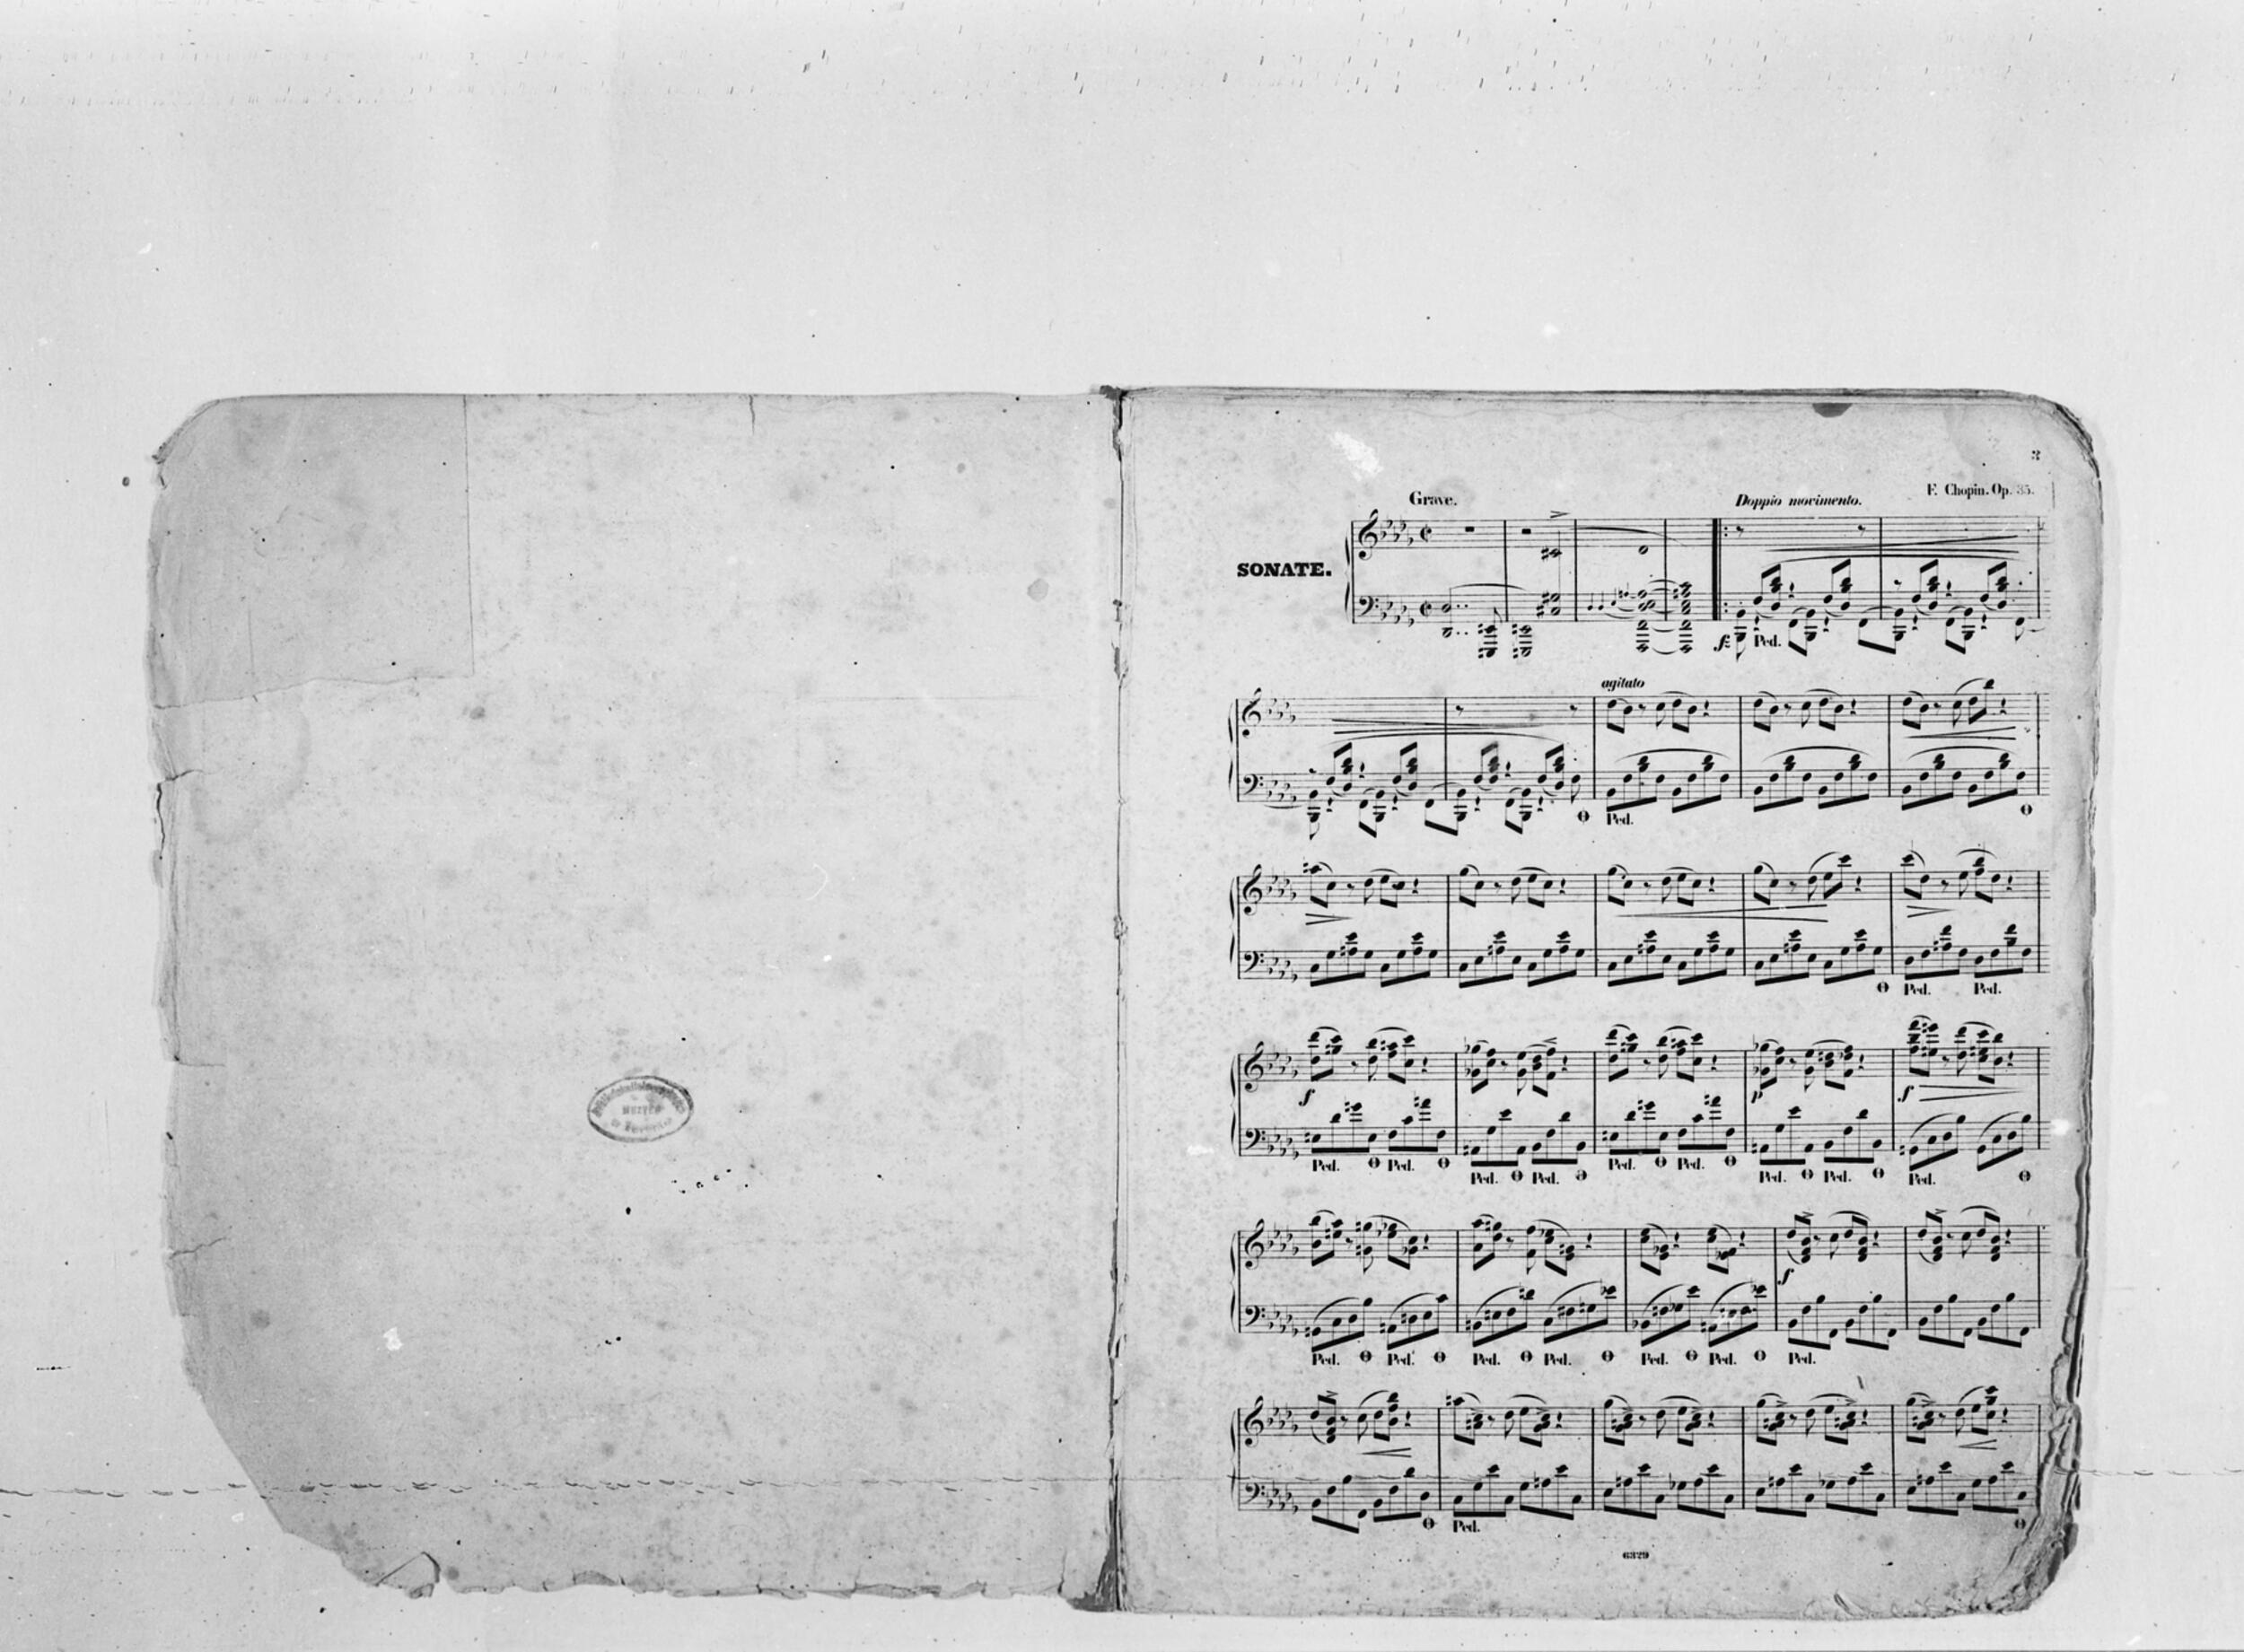 3
F. Chopin. Op. 35.
Grave.
Doppio movimento.
SONATE.
f Ped.
agitato
Ped.
Ped. Ped.
f p f
Ped. Ped. Ped. Ped. Ped. Ped. Ped. Ped. Ped.
f
Ped. Ped. Ped. Ped. Ped. Ped. Ped.
Ped.
6329
MUZYCZ